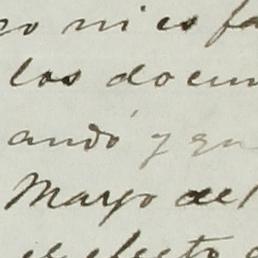 so ni es fa
los docum
andó y qu
Mayo del
el efecto